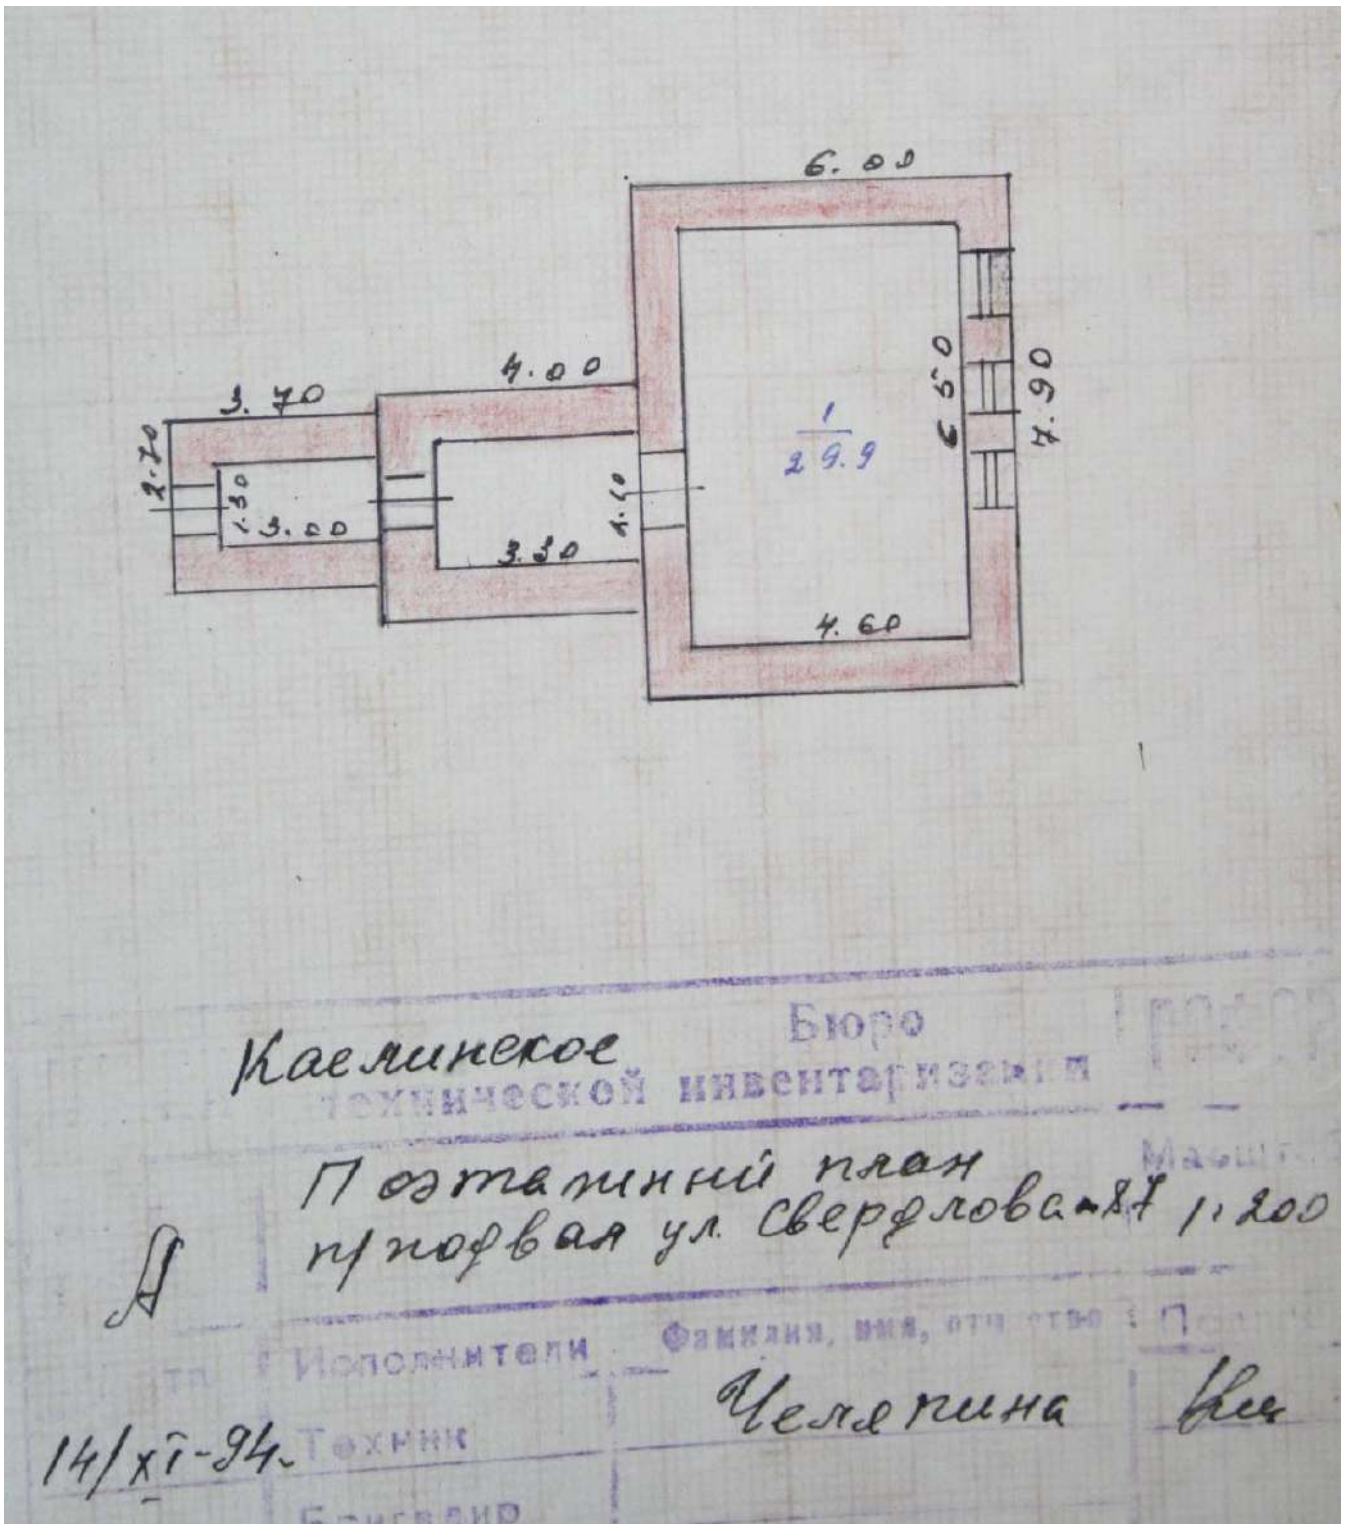 6.00
4.00
3.70
2.70
1.30
3.00
3.30
6 50
7.90
1
29.9
4.60
Каслинское Бюро
технической инвентаризации
Поэтажный план
п/подвал ул. Свердлова-87 1:200
А
Исполнители Фамилия, имя, отчество
14/XI-94. Техник Челяпина
Бригадир